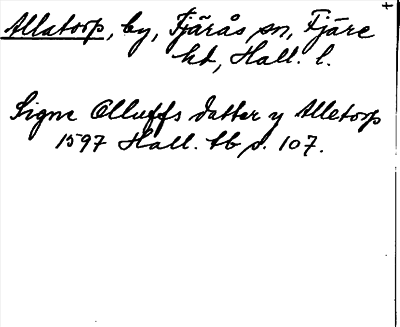 Allatorp, by, Fjärås sn, Fjäre
hd, Hall. l.
Signe Olluffs datter y Alletorp
1597 Hall. tb s. 107.